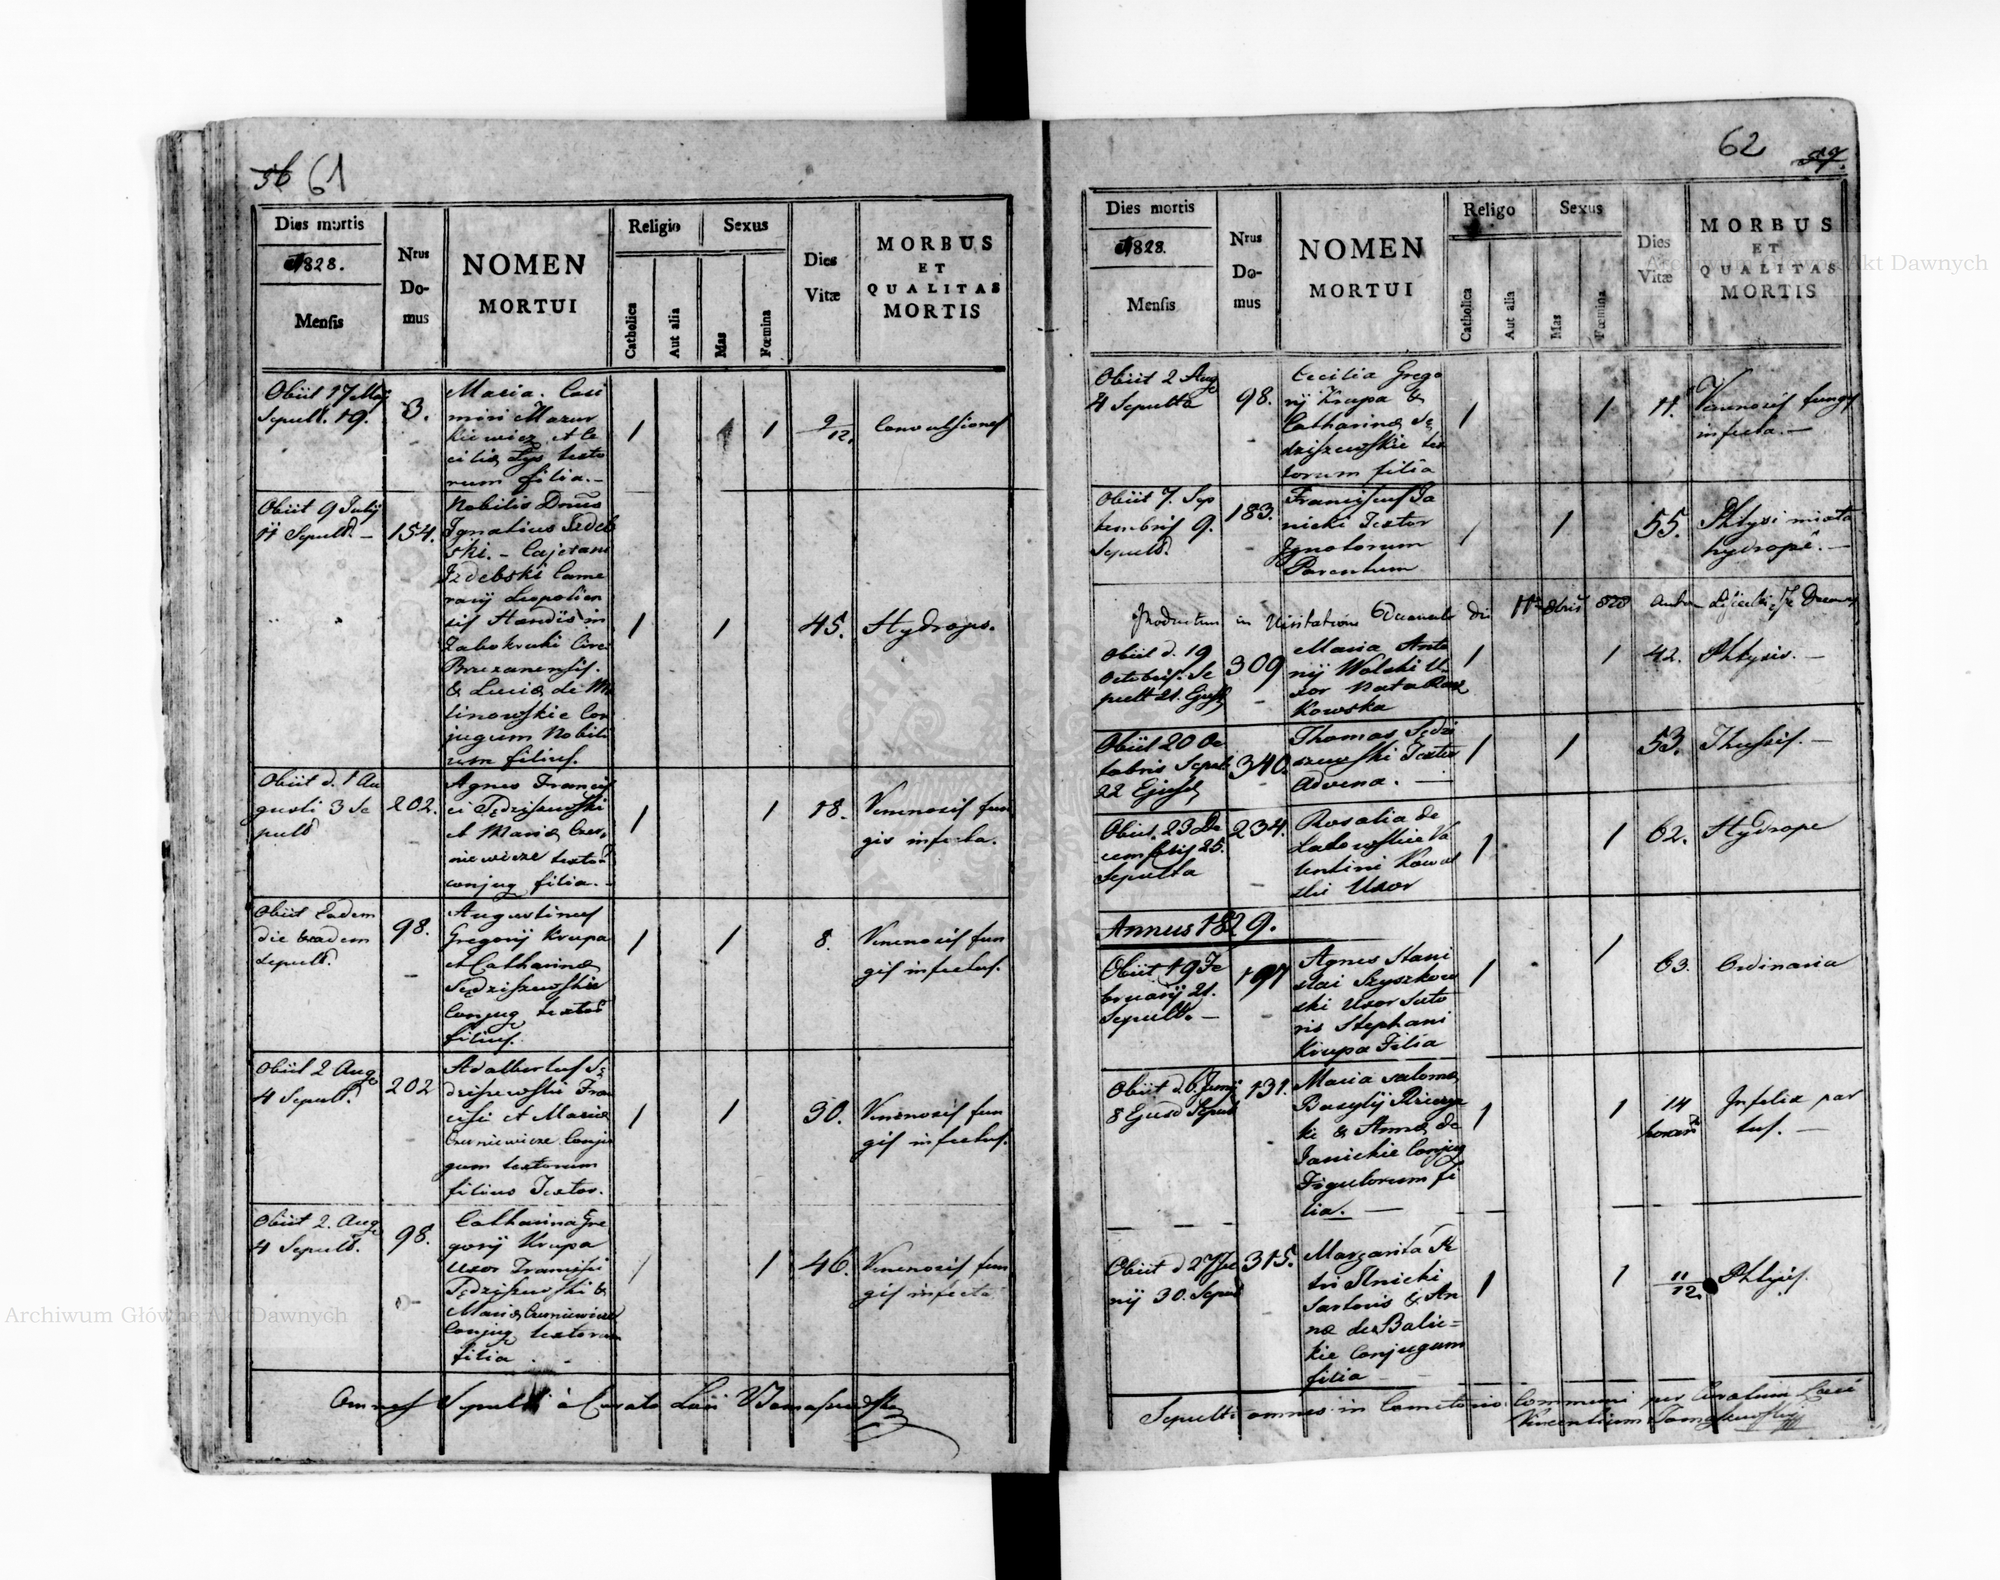 56 61
Dies mortis
1828.
Mensis
Nrus
Do-
mus
NOMEN
MORTUI
Religio
Catholica
Aut alia
Sexus
Mas
Fœmina
Dies
Vitæ
MORBUS
ET
QUALITAS
MORTIS
Obiit 17 Maj
Sepult. 19.
3.
Maria Casi
miri Mazur
kiewicz et Ce
ciliæ
texto
rum filia.-
1
1
9/12.
Convulsiones
Obiit 9 Julij
11 Sepult. -
154.
Nobilis Dnus
Ignatius Izdeb
ski. - Cajetani
Izdebski Came
rarij Leopolien
sis Hæredis in
Zabokruki Circ
Brzezanensis.
& Luciæ de
linowskie Con
jugum Nobili
um filius.
1
1
45.
Hydrops.
Obiit d. 1 Au
gusti 3 Se
pult
202.
Agnes Francis
ci Sędziszewski
et Mariæ Czer
niewicze textor
conjug filia. -
1
1
18.
Venenosis fun
gis infecta.
Obiit Eadem
die eadem
sepult.
98.
Augustinus
Gregorij Krupa
et Catharinæ
Sędziszewskie
Conjug textor
filius.
1
1
8.
Venenosis fun
gis infectus.
Obiit 2 Aug
4 Sepult.
202
Adalbertus Sę
dziszewski Fran
cisci et Mariæ
Czerniewicze Conju
gum textorum
filius Textor.
1
1
30.
Venenosis fun
gis infectus.
Obiit 2. Aug
4 Sepult.
98.
Catharina Gre
gorij Krupa
Uxor Francisci
Sędziszewski &
Mariæ Czerniewicze
Conjug textorum
filia
1
1
46.
Venenosis fun
gis infecta
Omnes Sepulti à Curato Loci
62 57.
Dies mortis
1828.
Mensis
Nrus
Do-
mus
NOMEN
MORTUI
Religo
Catholica
Aut alia
Sexus
Mas
Fœmina
Dies
Vitæ
MORBUS
ET
QUALITAS
MORTIS
Obiit 2 Aug
4 Sepulta
98.
Cecilia Grego
rij Krupa &
Catharinæ Sę
dziszewskie tex
torum filia
1
1
11.
Venenosis fungis
infecta. -
Obiit 7. Sep
tembris 9.
Sepult.
183.
Franciscus Ja
nicki Textor
Ignotorum
Parentum
1
1
55.
Phtysi mixta
hydrope. -
Productum in Visitatione Decanali die 11 8bris 828
Obiit d. 19
Octobris. Se
pult 21. Ejusd
309
Maria Anto
nij Wolski U
xor Nata
kowska
1
1
42.
Phtysis. -
Obiit 20 Oc
tobris Sepult
22 Ejusd
340.
Thomas Sędzi
szewski Textor
Advena. -
1
1
53.
Thussis. -
Obiit. 23 De
cembris 25.
Sepulta
234.
Rosalia de
Labowskie Va
lentini Kowal
ski Uxor
1
1
62.
Hydrope
Annus 1829.
Obiit 19 Fe
bruarij 21.
Sepult. -
197
Agnes Stani
slai Szyszkow
ski Uxor Suto
ris Stephani
Krupa Filia
1
1
63.
Ordinaria
Obiit d. 6. Junij
8 Ejusd Sepult
131.
Maria Salomea
Basylij
ki & Annæ de
Janickie Conjug
Figulorum fi
lia. -
1
1
14
horarum
Infelix par
tus. -
315.
Margarita Pe
tri Ilnicki
Sartoris & An
næ de Balic=
kie Conjugum
filia
1
1
11/12
Phtysis.
Sepulti omnes in Cœmeterio Communi per Curatum Loci
Vincentium Tomaszewski
Archiwum Główne Akt Dawnych
Archiwum Główne Akt Dawnych